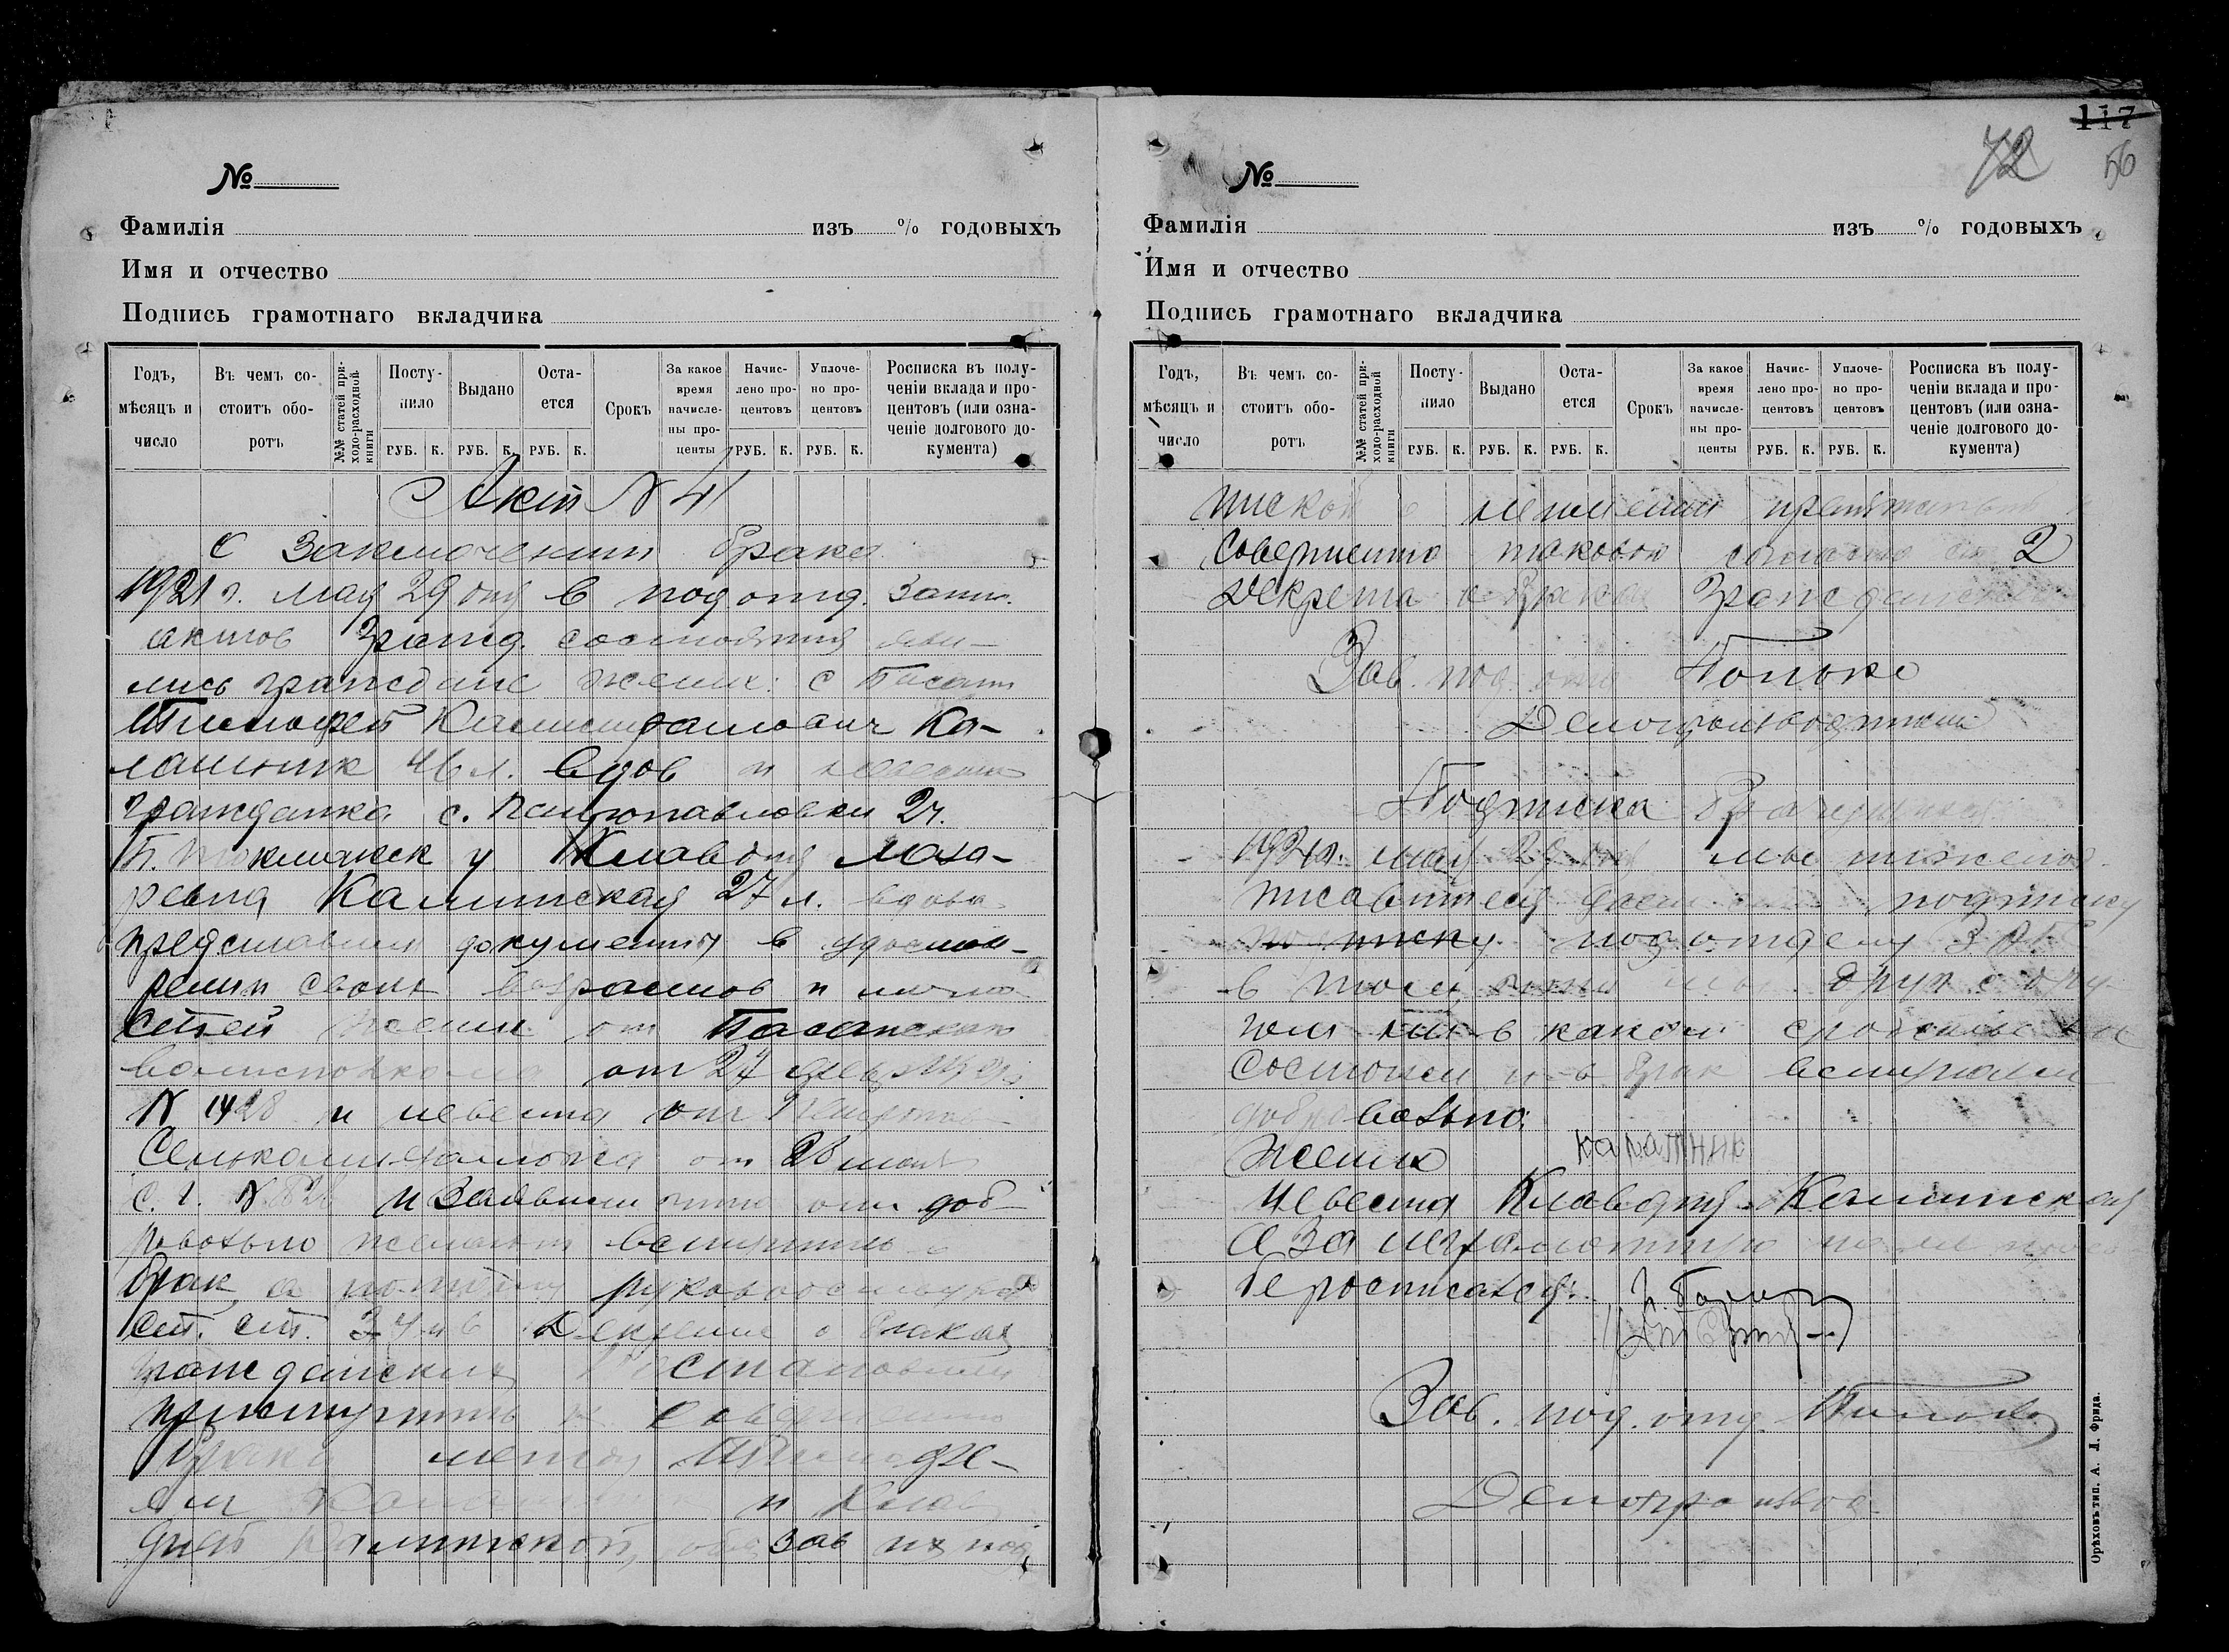 №
Фамилія изъ % годовыхъ
Имя и отчество
Подпись грамотнаго вкладчика
Годъ, мѣсяцъ и число
Въ чемъ состоитъ оборотъ
№№ статей приходо-расходной книги
Поступило РУБ. К.
Выдано РУБ. К.
Остается РУБ. К.
Срокъ
За какое время начислены проценты
Начислено процентовъ РУБ. К.
Уплочено процентовъ РУБ. К.
Росписка въ полученіи вклада и процентовъ (или означеніе долгового документа)
Акт N 41
О заключении брака
1921 г. мая 29 дня в подотд. запис.
актов гражд. состояния яви-
лись граждане жених: с Басани
Тимофей Калистратович Ка-
лашник 46 л. вдов и невеста
гражданка с. Петропавловки 2й
Б. Токмакск у. Клавдия Лаза-
ревна Калинская 27 л. вдова
представили документы в удостов-
рении своих возрастов и лично
стей жених от Басанского
волисполкома от 24
N 1428 и невеста от
от 28 мая
с. г. N и заявили что они доб
ровольно желают вступить в
брак, а потому руководствуясь
ст. ст. 3 4 и 6 Декрета о браках
гражданских Постановили
приступить к совершению
брака между Тимофе-
ем и Клав
дией Калинской, обязав их под
117
72
56
№
Фамилія изъ % годовыхъ
Имя и отчество
Подпись грамотнаго вкладчика
Годъ, мѣсяцъ и число
Въ чемъ состоитъ оборотъ
№№ статей приходо-расходной книги
Поступило РУБ. К.
Выдано РУБ. К.
Остается РУБ. К.
Срокъ
За какое время начислены проценты
Начислено процентовъ РУБ. К.
Уплочено процентовъ РУБ. К.
Росписка въ полученіи вклада и процентовъ (или означеніе долгового документа)
пиской о неимении препятствий к
совершению таковой согласно ст 2
декрета о браках гражданских
Зав. под. отд
Делопроизводитель
Подписка Брачущихся
1921 г. мая 29 дня мы нижепод-
писавшиеся даем подписку
подписку подотделу ЗАГС
в том, что мы друг с дру
гом ни в каком сродстве не
состоим и в брак вступаем
добровольно:
Жених
Невеста Клавдия Калинская
а за неграмотную по ее прось
бе росписался:
Зав. под. отд.
Делопроизвод
Орѣховъ тип. А. Л. Фрида.